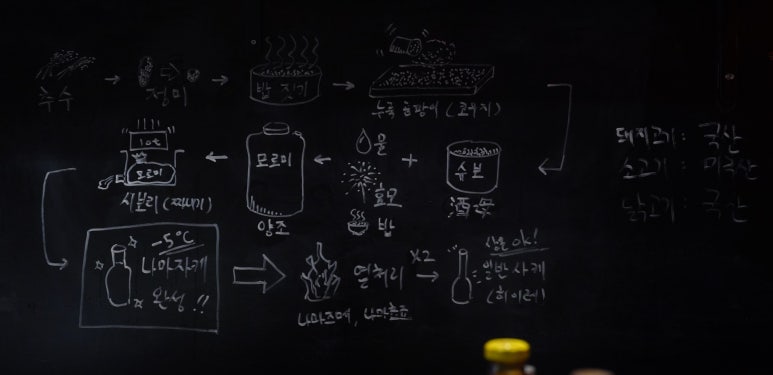 추수
정미
밥 짓기
누룩 곰팡이 (코우지)
슈보
酒母
+
물
효모
밥
모로미
양조
10t
모로미
시보리 (짜내기)
-5°C
나마자케
완성!!
열처리
나마즈메, 나마쵸조
X2
상온 ok!
일반 사케
(히이레)
돼지고기: 국산
소고기: 미국산
닭고기: 국산